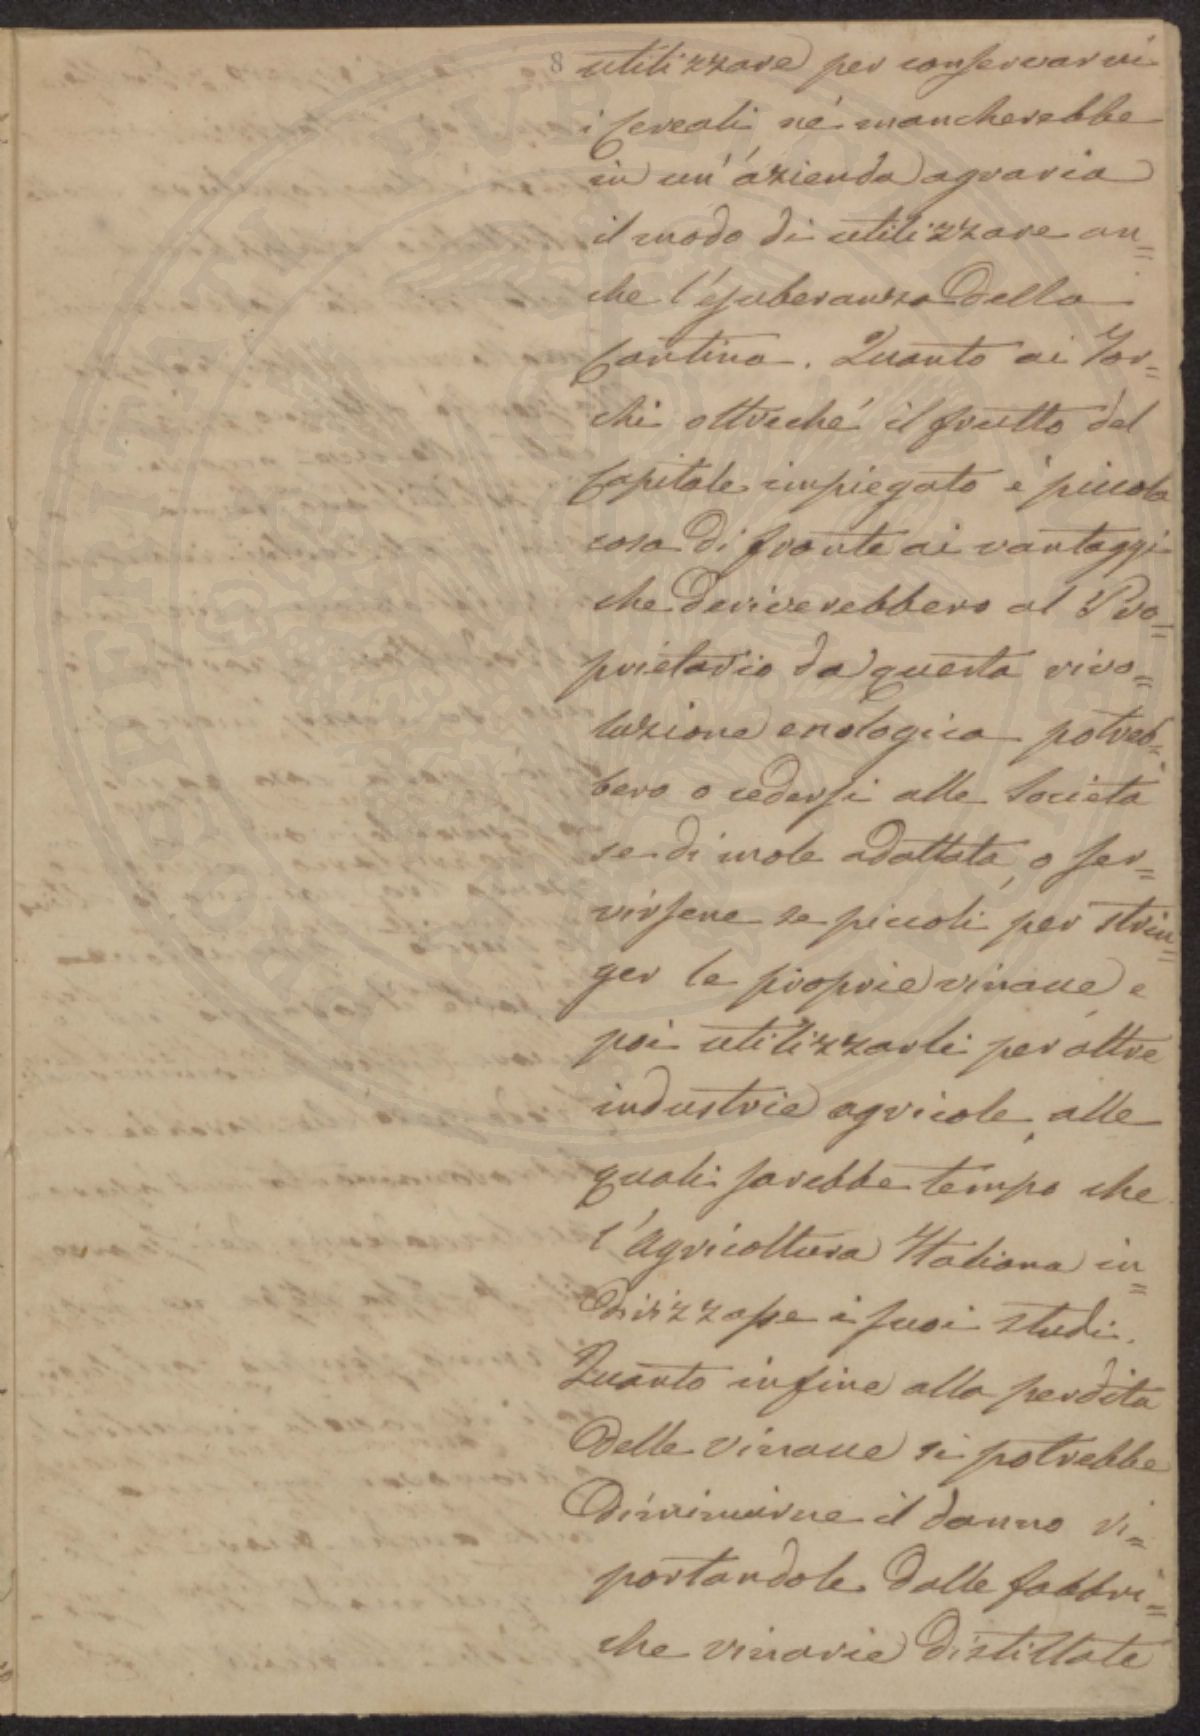 8
utilizzare per conservarvi
i Cereali, né mancherebbe
in un'azienda agraria
il modo di utilizzare an=
che l'esuberanza della
Cantina. Quanto ai Tor=
chi oltreché il frutto del
Capitale impiegato è piccola
cosa di fronte ai vantaggi
che deriverebbero al Pro=
prietario da questa rivo=
luzione enologica potreb=
bero o cedersi alle Società
se di mole adattata, o ser=
virsene se piccoli, per strin=
ger le proprie vinacce, e
poi utilizzarli per altre
industrie agricole, alle
quali sarebbe tempo che
l'Agricoltura Italiana in=
dirizzasse i suoi studi.
Quanto infine alla perdita
delle vinacce si potrebbe
diminuirne il danno ri=
portandole dalle fabbri=
che vinarie distillate